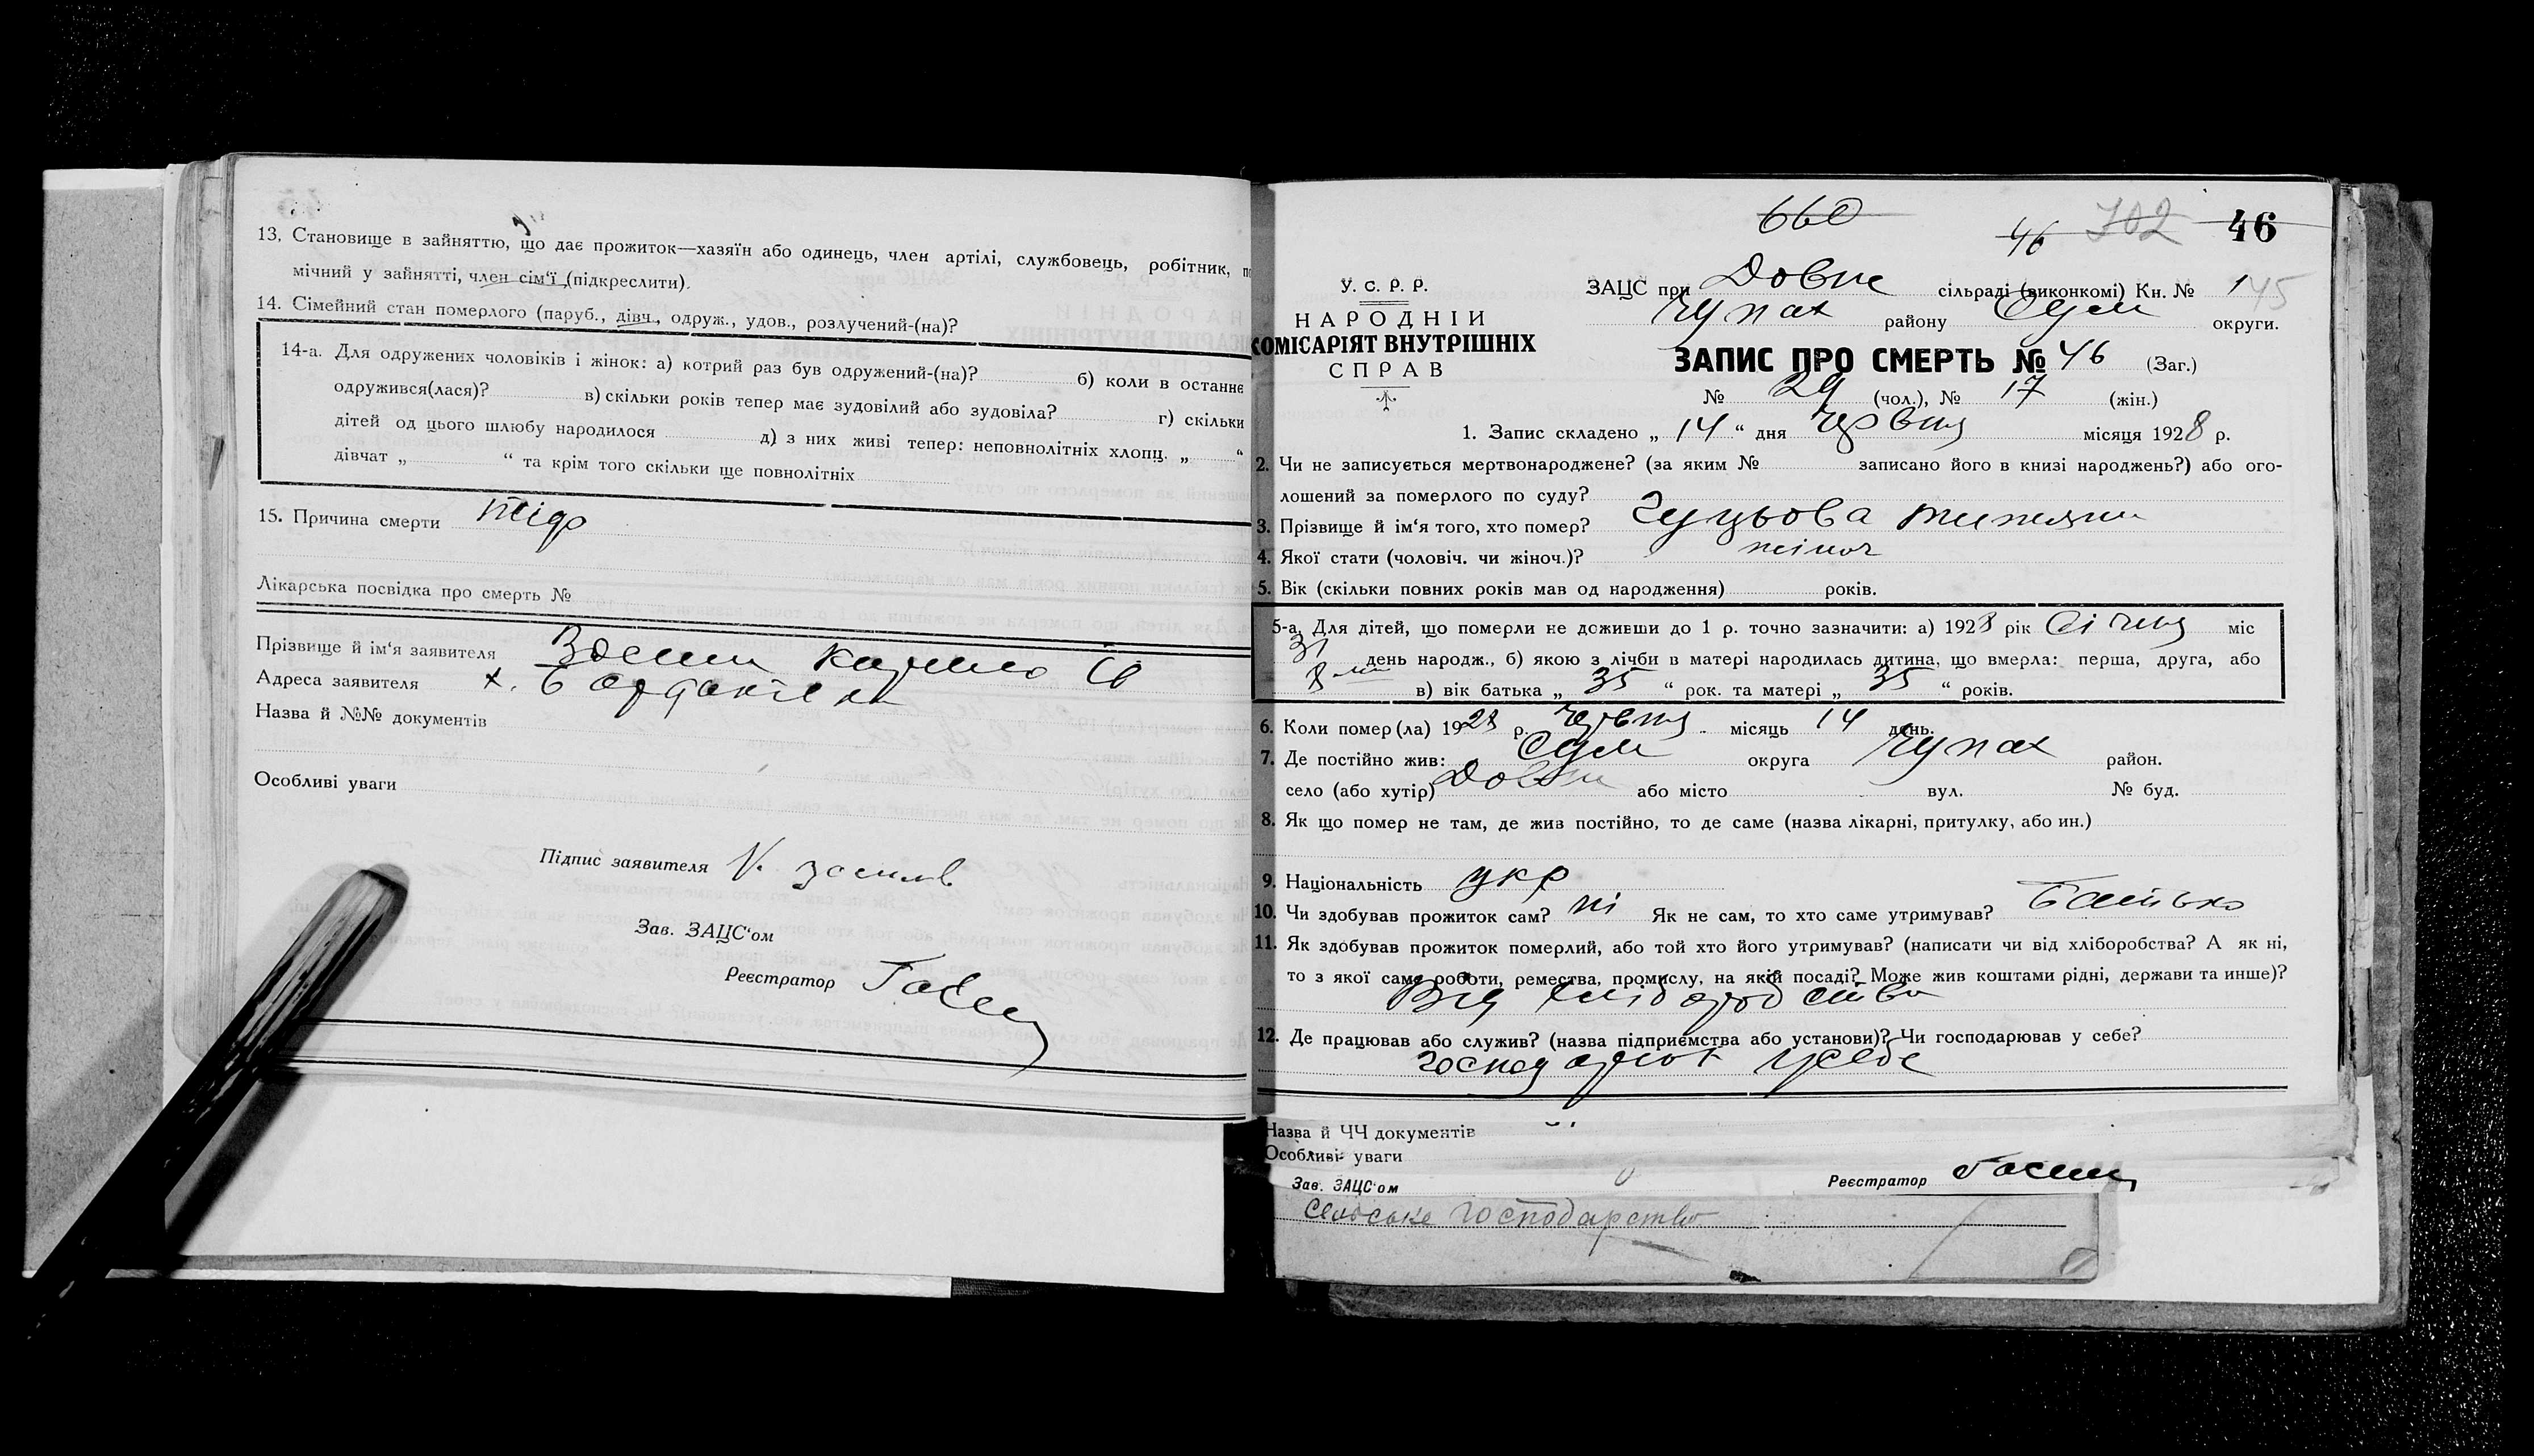 13. Становище в зайняттю, що дає прожиток—хазяїн або одинець, член артілі, службовець, робітник,
мічний у зайнятті, член сім'ї (підкреслити).
14. Сімейний стан померлого (паруб., дівч., одруж., удов., розлучений-(на)?
14-а. Для одружених чоловіків і жінок: а) котрий раз був одружений-(на)? б) коли в останнє
одружився(лася)? в) скільки років тепер має зудовілий або зудовіла? г) скільки
дітей од цього шлюбу народилося д) з них живі тепер: неповнолітніх хлопц. „ “
дівчат „ “ та крім того скільки ще повнолітніх
15. Причина смерти
Лікарська посвідка про смерть №
Прізвище й ім'я заявителя
Адреса заявителя х.
Назва й №№ документів
Особливі уваги
Підпис заявителя
Зав. ЗАЦС'ом
Реєстратор
660
46 702 46
У. С. Р. Р.
НАРОДНІЙ
КОМІСАРІЯТ ВНУТРІШНІХ
СПРАВ
ЗАЦС при сільраді (виконкомі) Кн. № 1 45
Чупах району Сум округи.
ЗАПИС ПРО СМЕРТЬ № 46 (Заг.)
№ 29 (чол.), № 17 (жін.)
1. Запис складено „ 14 “ дня Червня місяця 1928 р.
2. Чи не записується мертвонароджене? (за яким № записано його в книзі народжень?) або ого-
лошений за померлого по суду?
3. Прізвище й ім'я того, хто помер?
4. Якої стати (чоловіч. чи жіноч.)? жіноч
5. Вік (скільки повних років мав од народження) років.
5-а. Для дітей, що померли не доживши до 1 р. точно зазначити: а) 1928 рік Січня міс
31 день народж., б) якою з лічби в матері народилась дитина, що вмерла: перша, друга, або
8 в) вік батька „ 35 “ рок. та матері „ 35 “ років.
6. Коли помер(ла) 1928 р. Червня місяць 14 день.
7. Де постійно жив: Сум округа Чупах район.
село (або хутір) або місто вул. № буд.
8. Як що помер не там, де жив постійно, то де саме (назва лікарні, притулку, або ин.)
9. Національність укр
10. Чи здобував прожиток сам? ні Як не сам, то хто саме утримував? Батько
11. Як здобував прожиток померлий, або той хто його утримував? (написати чи від хліборобства? А як ні,
то з якої саме роботи, ремества, промислу, на якій посаді? Може жив коштами рідні, держави та инше)?
Від хліборобства
12. Де працював або служив? (назва підприємства або установи)? Чи господарював у себе?
господарює у себе
Назва й ЧЧ документів
Особливі уваги
Зав. ЗАЦС'ом Реєстратор
Сельське господарство